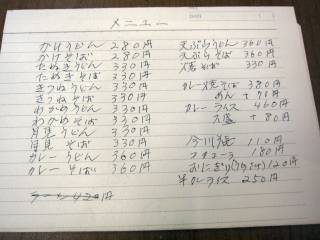 メニュー
かけうどん 280円
かけそば 280円
たぬきうどん 330円
たぬきそば 330円
きつねうどん 330円
きつねそば 330円
わかめうどん 330円
わかめそば 330円
月見うどん 330円
月見そば 330円
カレーうどん 360円
カレーそば 360円
天ぷらうどん 360円
天ぷらそば 360円
焼そば 330円
カレー焼そば 380円
めん + 円
カレーライス 460円
大盛 + 80円
今川焼 110円
フランクフルト 180円
おにぎり 120円
半カレーライス 250円